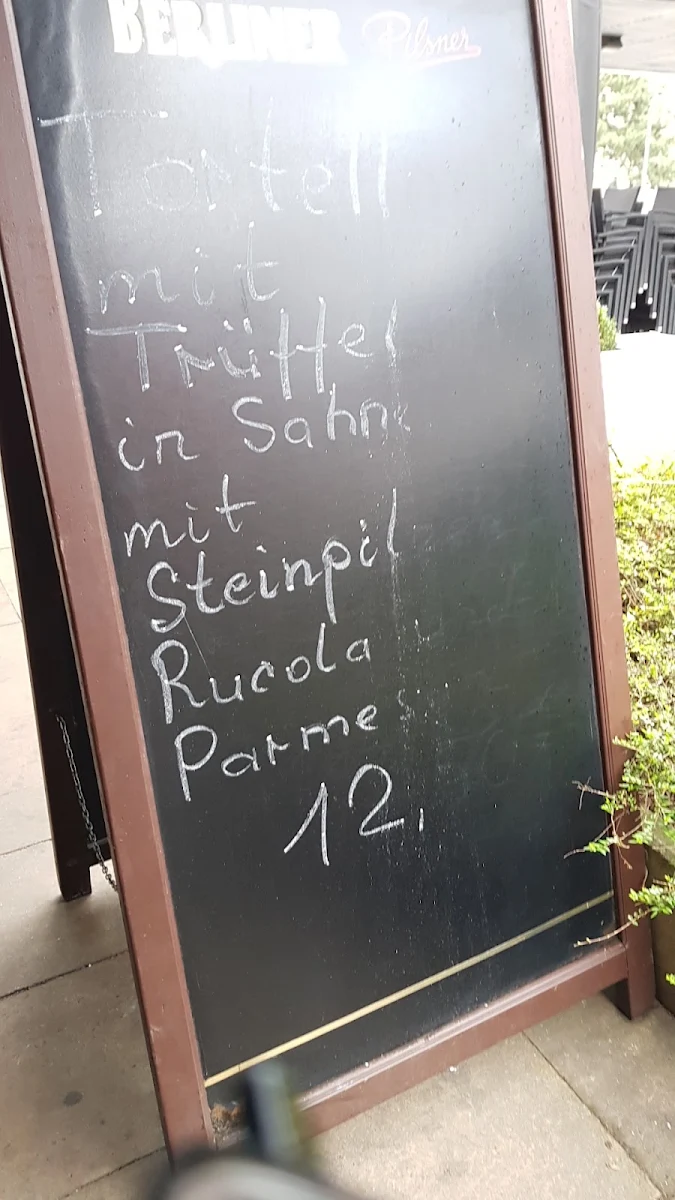 BERLINER Pilsner
Tortell
mit
Trüffel
in Sahn
mit
Steinpil
Rucola
Parme
12,